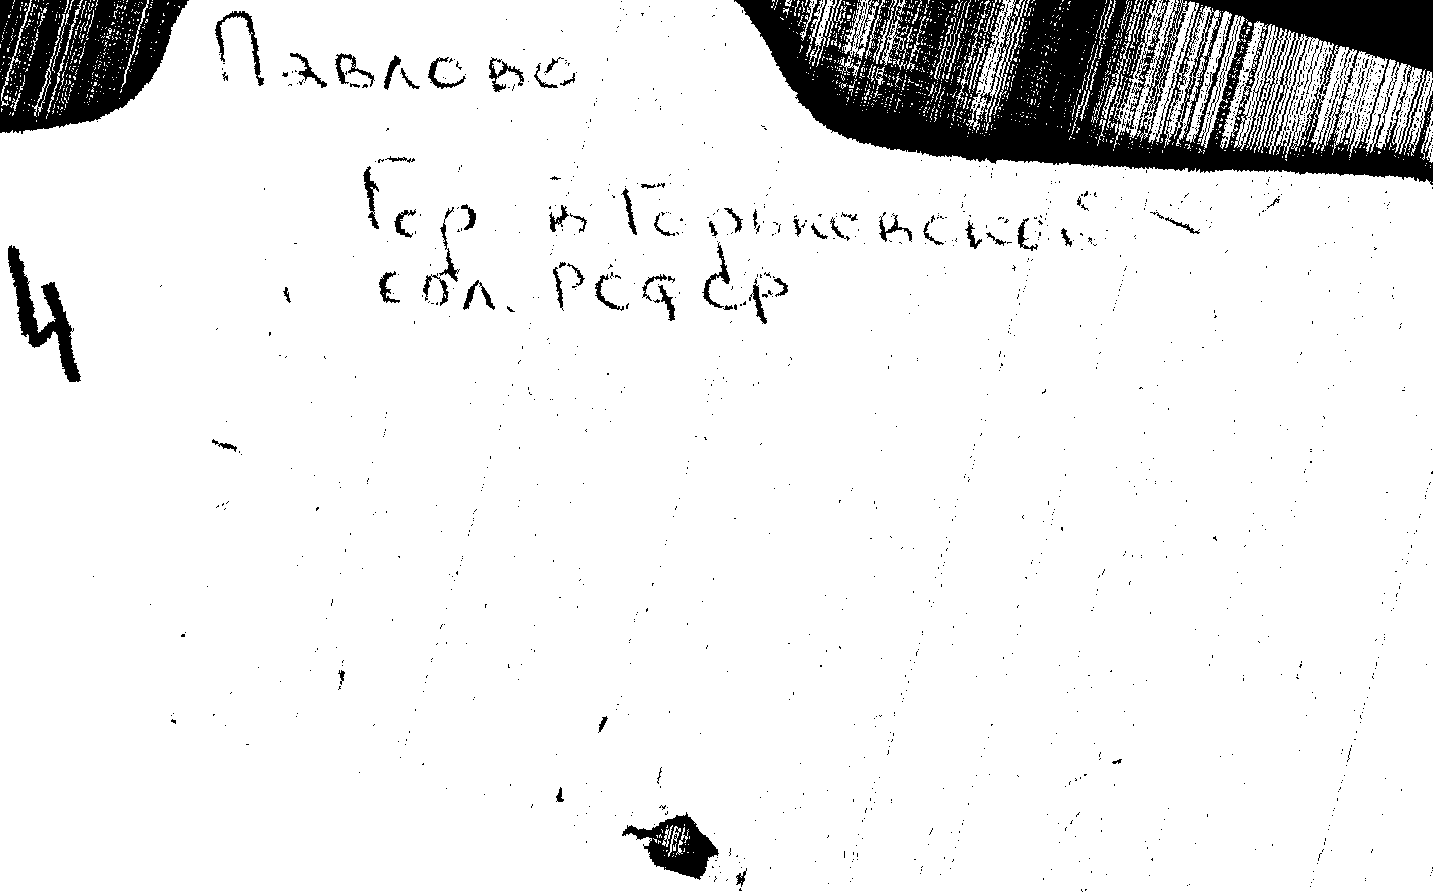 Павлово
Гор в Горьковской
обл. РСФСР
4